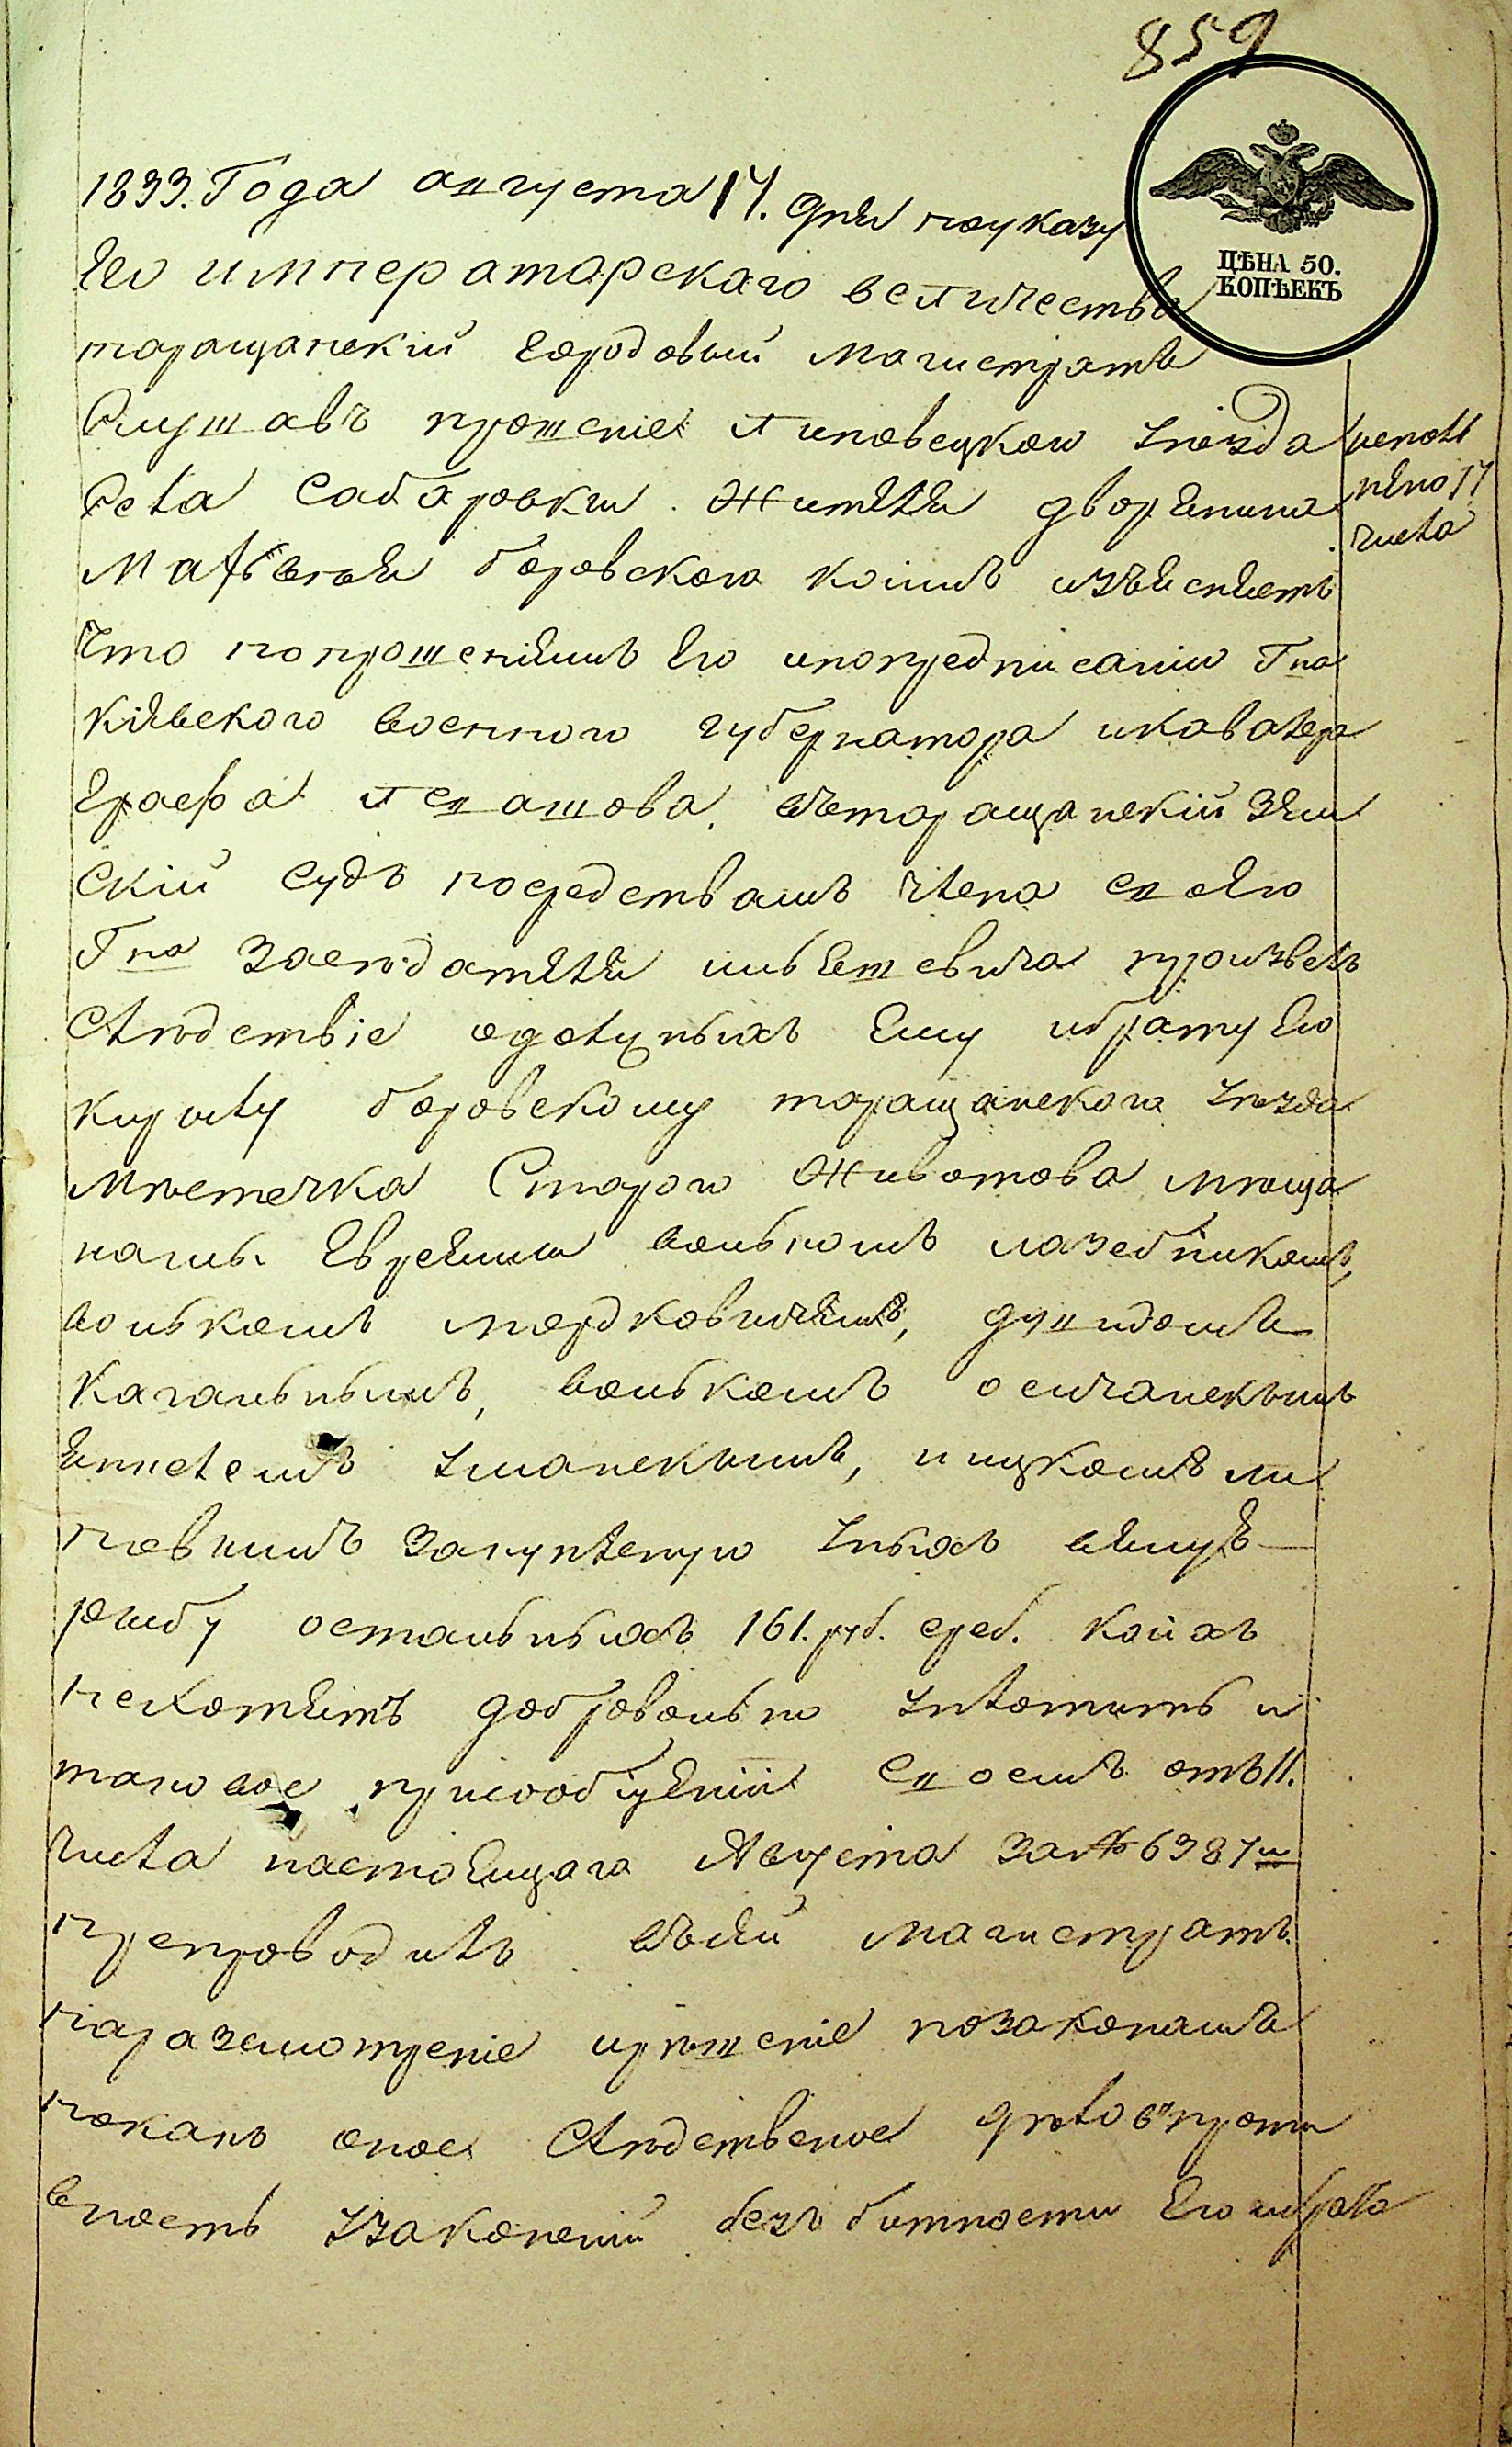 859
ЦѢНА 50.
КОПѢЕКЪ
1833. Года августа 17. дня по указу
Его императорскаго величества
таращанскій городовый магистратъ
Слушавъ прошеніе липовецкого уѣзда
села Сабаровки жителя дворянина
Матѣвея боровского коимъ изъясняетъ
что по прошеніямъ Его и по предписанію Гна
кіявского военного губернатора и кавалера
Графа левашова, въ таращанскій Зем
скій судъ посредствамъ члена своего
Гна Заседателя произвелъ
Следствіе о долуныхъ Ему и брату Его
кирилу боровскому таращанского уѣзда
мѣстечка Старого Животова мѣща
нами Евреями волькомъ лазебникомъ,
волькомъ мордковичемъ, дувидомъ
каганьнымъ, волькомъ осичанскымъ
уманскымъ, ицкомъ ли
повимъ за купленую уныхъ
остальныхъ 161. руб. среб. коихъ
нехотятъ добровольно уплотить и
таковое при сообщеніи своемъ отъ 11.
числа настоящаго Августа за № 6387м
препроводилъ въсей магистратъ
на разсмотреніе и рѣшеніе по законамъ
но какъ оное Следственое дѣло въ проти
вность узаконеній безъ битности Его и брата
исполн
нено 17
числа